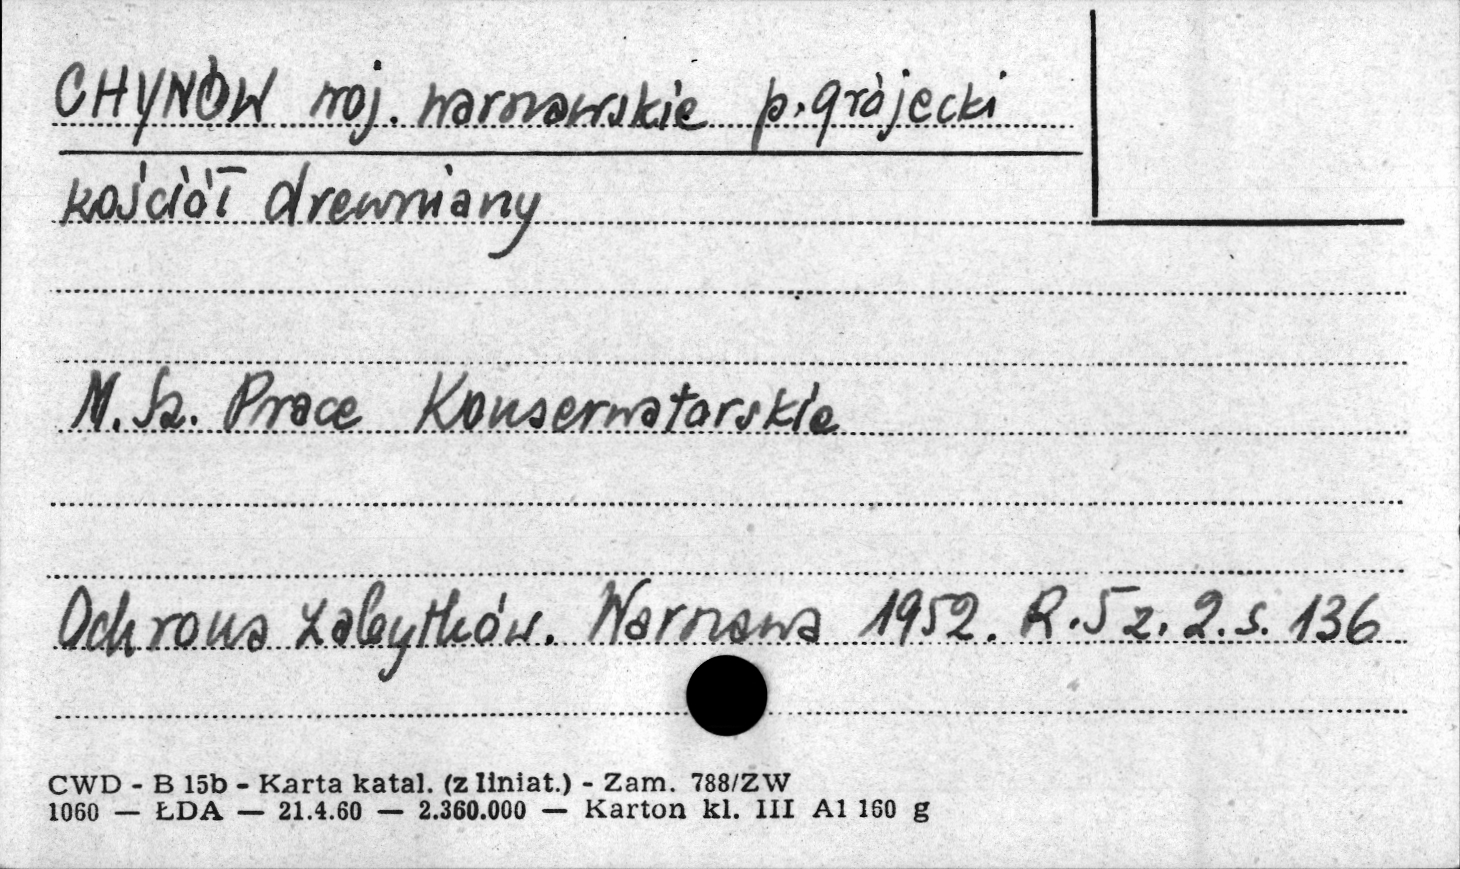 CHYNÓW woj. warszawskie p. grójecki
kościół drewniany
M. Sz. Prace Konserwatorskie
Ochrona Zabytków. Warszawa 1952. R. 5 z. 2. s. 136
CWD - B 15b - Karta katal. (z liniat.) - Zam. 788/ZW
1060 — ŁDA — 21.4.60 — 2.360.000 — Karton kl. III A1 160 g